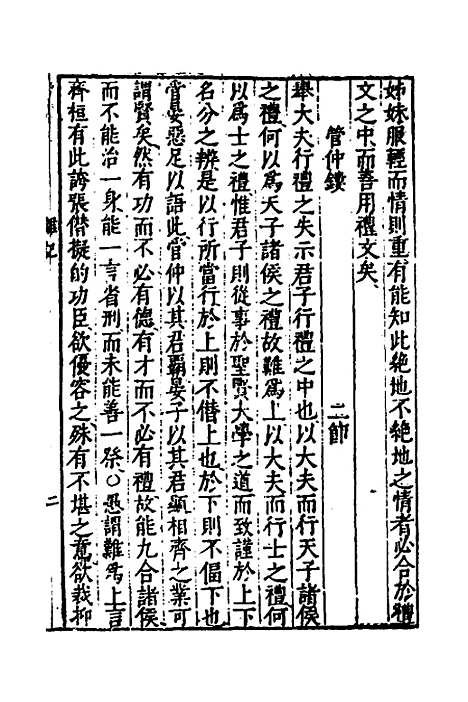 姊妹服輕而情則重有能知此絶地不絶地之情者必合於禮
文之中而善用禮文矣
管仲鏤　二節
舉大夫行禮之失示君子行禮之中也以大夫而行天子諸侯
之禮何以爲天子諸侯之禮故難爲上以大夫而行士之禮何
以爲士之禮惟君子則從事於聖賢大學之道而致謹於上下
名分之辨是以行所當行於上則不僭上也於下則不偪下也
管晏惡足以語此管仲以其君霸晏子以其君顯相齊之業可
謂賢矣然有功而不必有德有才而不必有禮故能九合諸侯
而不能治一身能一言省刑而未能善一祭○愚謂難爲上言
齊桓有此誇張僭擬的功臣欲優容之殊有不堪之意欲裁抑
雜記
二